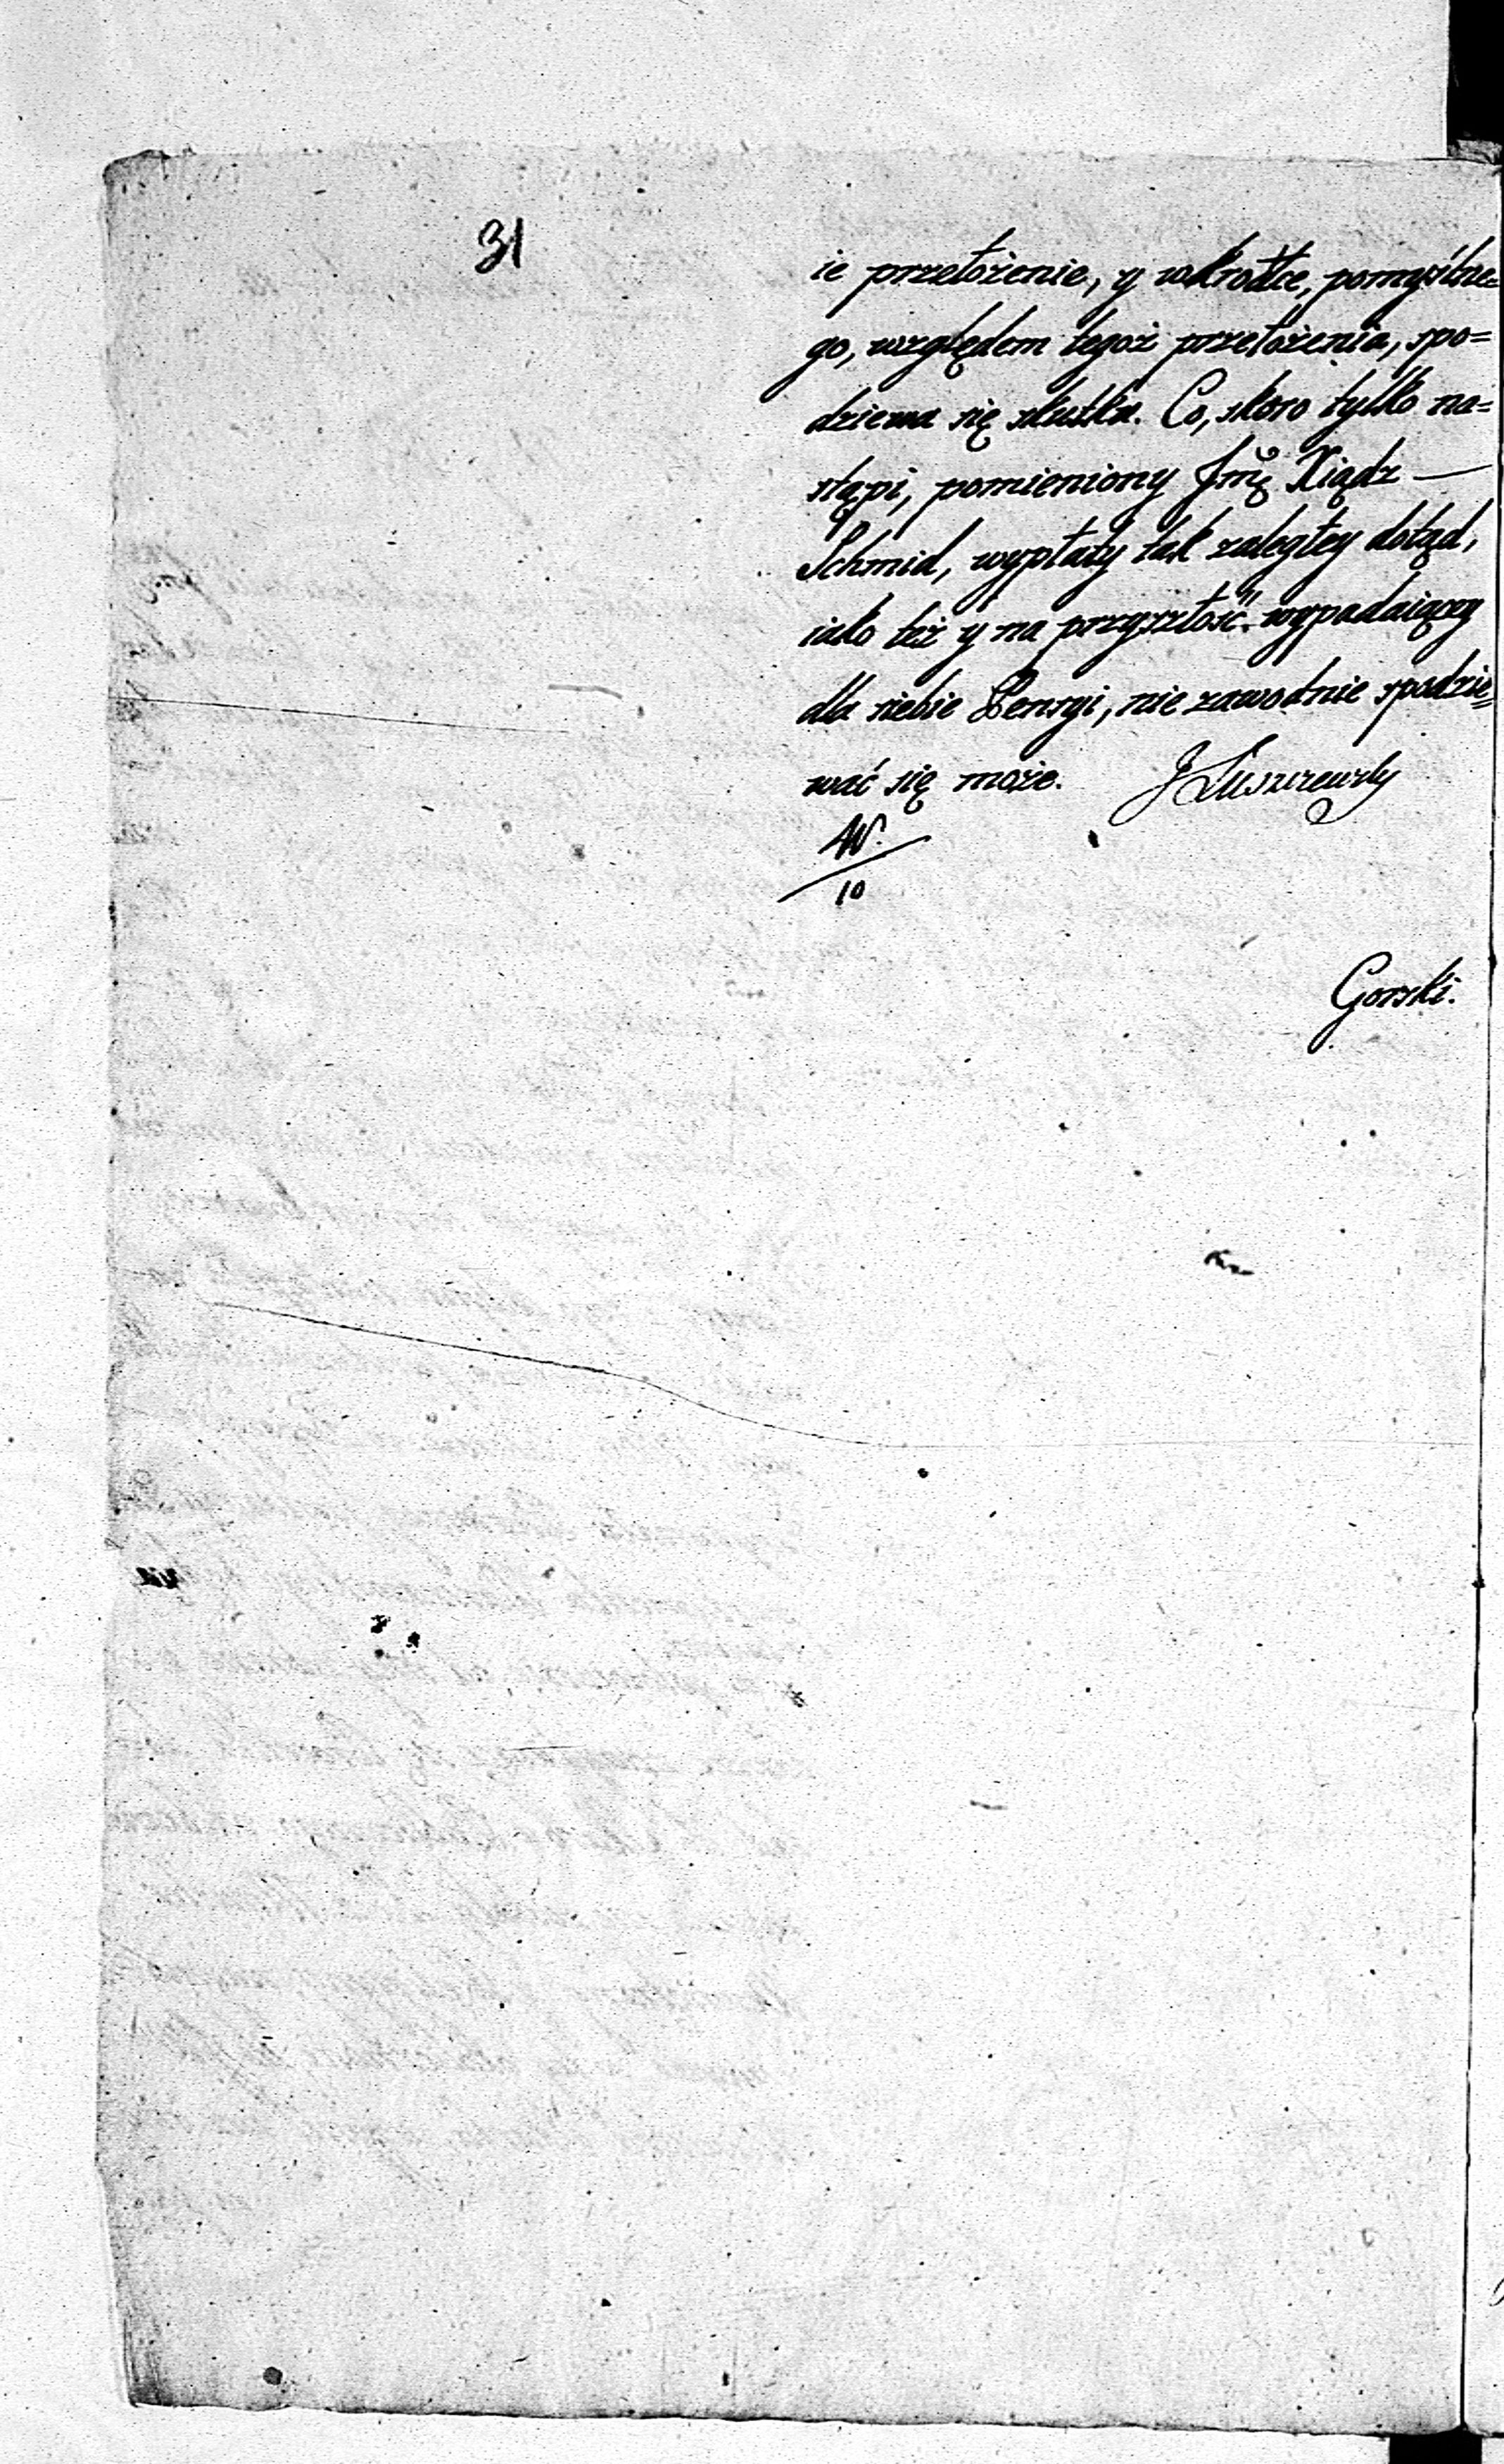 31
ie przełożenie, y wkrotce, pomyślne=
go, względem tegoż przełożenia, spo=
dziewa się skutku. Co, skoro tylko na=
stąpi, pomieniony Jmę Xiądz —
Schmid, wypłaty tak zaległey dotąd,
iako też y na przyszłość wypadaiącey
dla siebie Pensyi, nie zawodnie spodzie=
wać się może. J Łuszczewsky
10
Gorski.